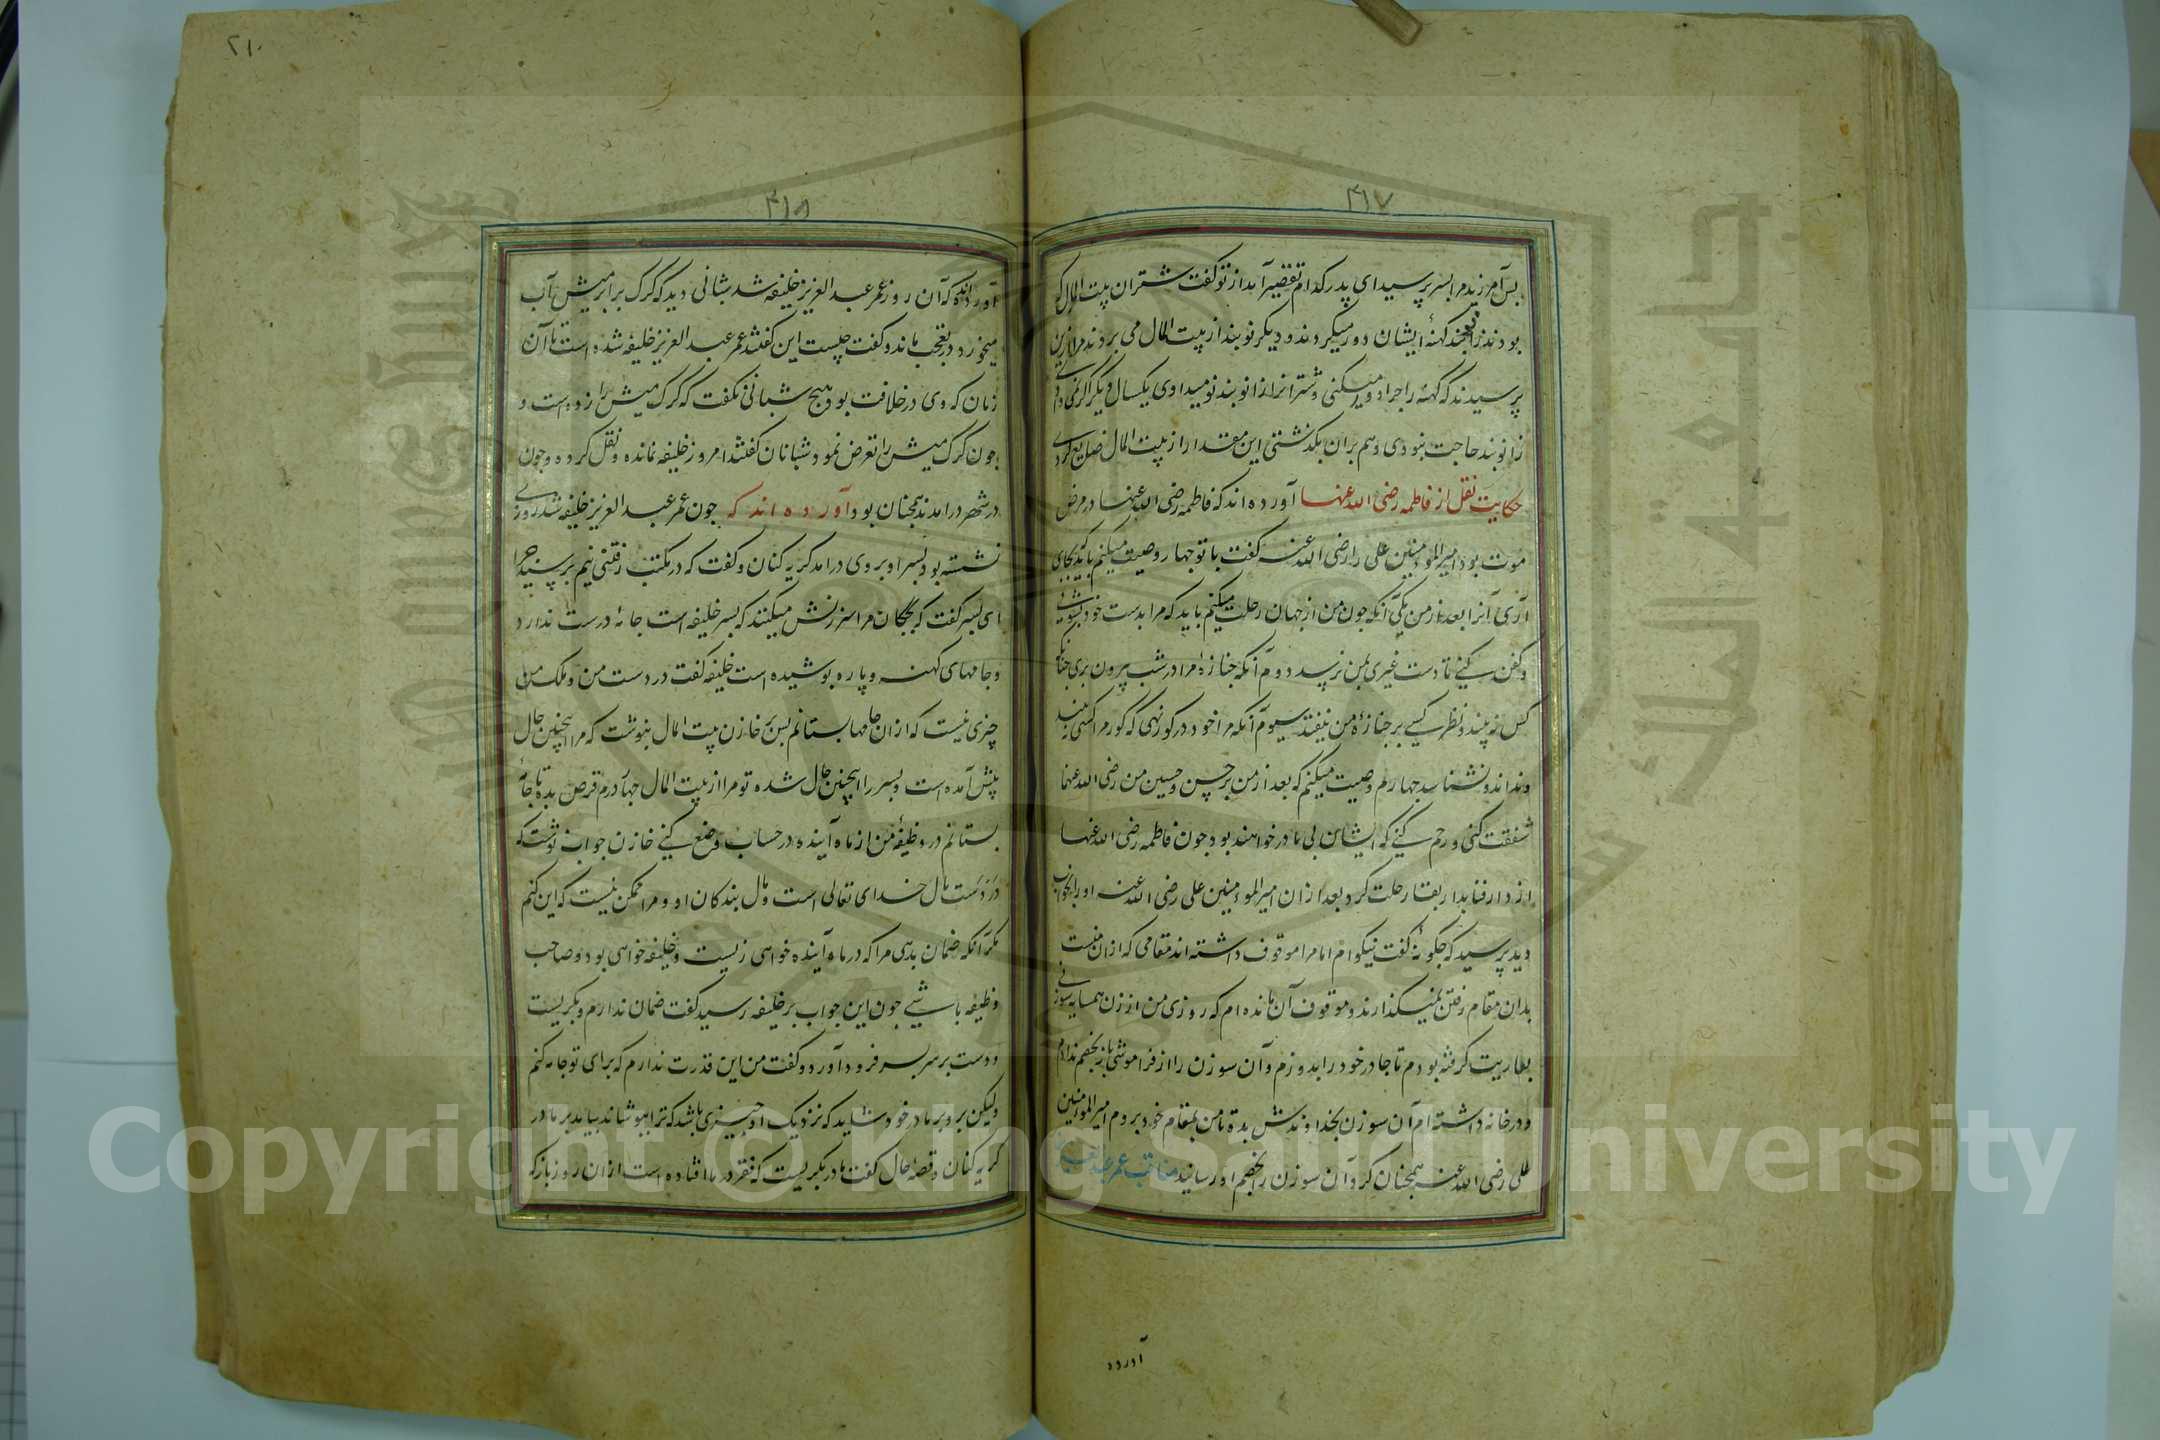 ۴۱۷
پس آمرزیدم را پسر پرسید ای پدر کدام تقصیر آمد از تو گفت شتران بیت المال که
بودند زانوبند کهنهٔ ایشان دور میکردند و دیگر نو بند از بیت المال می بردند مرا ازین
پرسیدند که کهنه را چرا دور میکنی و شتران را زانوبند نو میدادی یکسال دیگر اگر نمی دادی
زانوبند حاجت نبودی و هم بران بگذشتی این مقدار از بیت المال ضایع کردی
حکایت نقل از فاطمه رضی الله عنها آورده اند که فاطمه رضی الله عنها در مرض
موت بود امیر المومنین علی را رضی الله عنه گفت با تو چهار وصیت میکنم باید که بجای
آری آنرا بعد از من یکی آنکه چون من از جهان رحلت میکنم باید که مرا بدست خود بشویی
و کفن کنی تا دست غیری بمن نرسد دوم آنکه جنازهٔ مرا در شب بیرون بری چنانکه
کس نه بیند و نظر کسی بر جنازهٔ من نیفتد سیوم آنکه مرا خود در گور نهی که گور مرا کسی نه بیند
و نداند و نشناسد چهارم وصیت میکنم که بعد از من بر حسن و حسین من رضی الله عنهما
شفقت کنی و رحم کنی که ایشان بی مادر خواهند بود چون فاطمه رضی الله عنها
از دار فنا بدار بقا رحلت کرد بعد از ان امیر المومنین علی رضی الله عنه او را بخواب
دید پرسید که چگونهٔ گفت نیکو ام اما مرا موقوف داشته اند مقامی که از ان منست
بدان مقام رفتن نمیگذارند و موقوف آن مانده ام که روزی من از زن همسایه سوزنی
بعاریت گرفته بودم تا چادر خود را بدوزم و آن سوزن را از فراموشی باز بخصم ندادم
و در خانه داشته ام آن سوزن بخداوندش بده تا من بمقام خود بروم امیر المومنین
علی رضی الله عنه همچنان کرد و آن سوزن را بخصم او رسانید مناقب عمر عبد العزیز
آورده
۲۱۰
۴۱۸
آورده اند که آن روز عمر عبد العزیز خلیفه شد شبانی دید که گرگ برابر میش آب
میخورد در تعجب ماند و گفت چیست این گفتند عمر عبد العزیز خلیفه شده است تا آن
زمان که وی در خلافت بود هیچ شبانی نگفت که گرگ میش را زده است و
چون گرگ میش را تعرض نمود شبانان گفتند امروز خلیفه نمانده و نقل کرده و چون
در شهر درامدند همچنان بود آورده اند که چون عمر عبد العزیز خلیفه شد روزی
نشسته بود پسر او بر وی درامد گریه کنان و گفت که در مکتب رفتنی نیم پرسید چرا
ای پسر گفت که بچگان مرا سرزنش میکنند که پسر خلیفه است جامهٔ درست ندارد
و جامهای کهنه و پاره پوشیده است خلیفه گفت در دست من و ملک من
چیزی نیست که ازان جامها بستانم پس بر خازن بیت المال بنوشت که مرا اینچنین حال
پیش آمده است و پسر را اینچنین حال شده تو مرا از بیت المال چهار درم قرض بده تا جامهٔ
بستانم در وظیفهٔ من از ماه آینده در حساب وضع کنی خازن جواب نوشت که
در دست مال خدای تعالی است و مال بندگان او و مرا ممکن نیست که این کنم
مگر آنکه ضمان بدهی مرا که در ماه آینده خواهی زیست و خلیفه خواهی بود و صاحب
وظیفه باشی چون این جواب بر خلیفه رسید گفت ضمان ندارم و بگریست
و دست بر سر پسر فرود آورد و گفت من این قدرت ندارم که برای تو جامه کنم
ولیکن برو بر مادر خود شاید که نزدیک او چیزی باشد که ترا بپوشاند بیامد بر مادر
گریه کنان و قصهٔ حال گفت مادر بگریست که فقر در ما افتاده است ازان روز باز که
Copyright © King Saud University